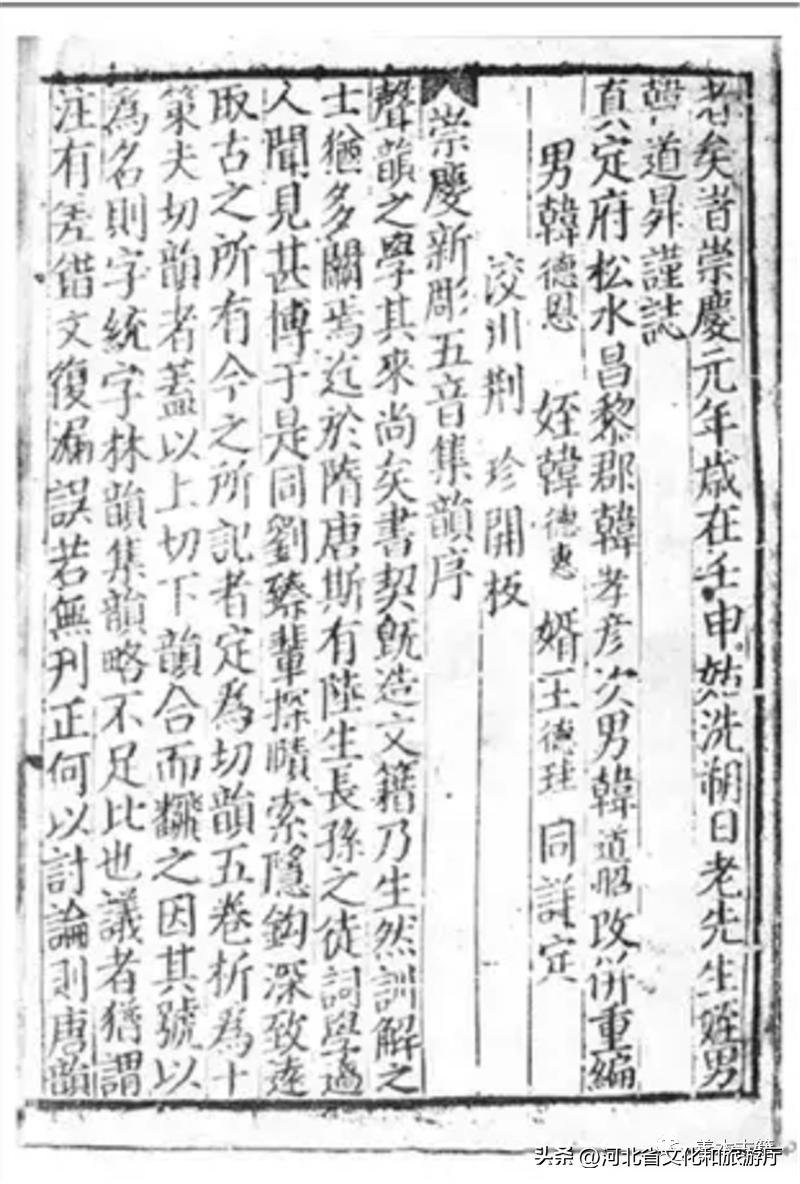 老矣旹崇慶元年歲在壬申姑洗朔日老先生姪男
韓道昇謹誌
真定府松水昌黎郡韓孝彦次男韓道昭改併重編
男韓德恩 姪韓德惠 婿王德珪 同詳定
洨川荆 珍開板
崇慶新彫五音集韻序
聲韻之學其來尚矣書契旣造文籍乃生然訓解之
士猶多闕焉迄於隋唐斯有陸生長孫之徒詞學過
人聞見甚博于是同劉臻輩探賾索隱鈎深致遠
取古之所有今之所記者定為切韻五卷析為十
策夫切韻者蓋以上切下韻合而翻之因其號以
為名則字統字林韻集韻略不足比也議者猶謂
注有差錯文復漏誤若無刋正何以討論則唐韻
头条 @河北省文化和旅游厅